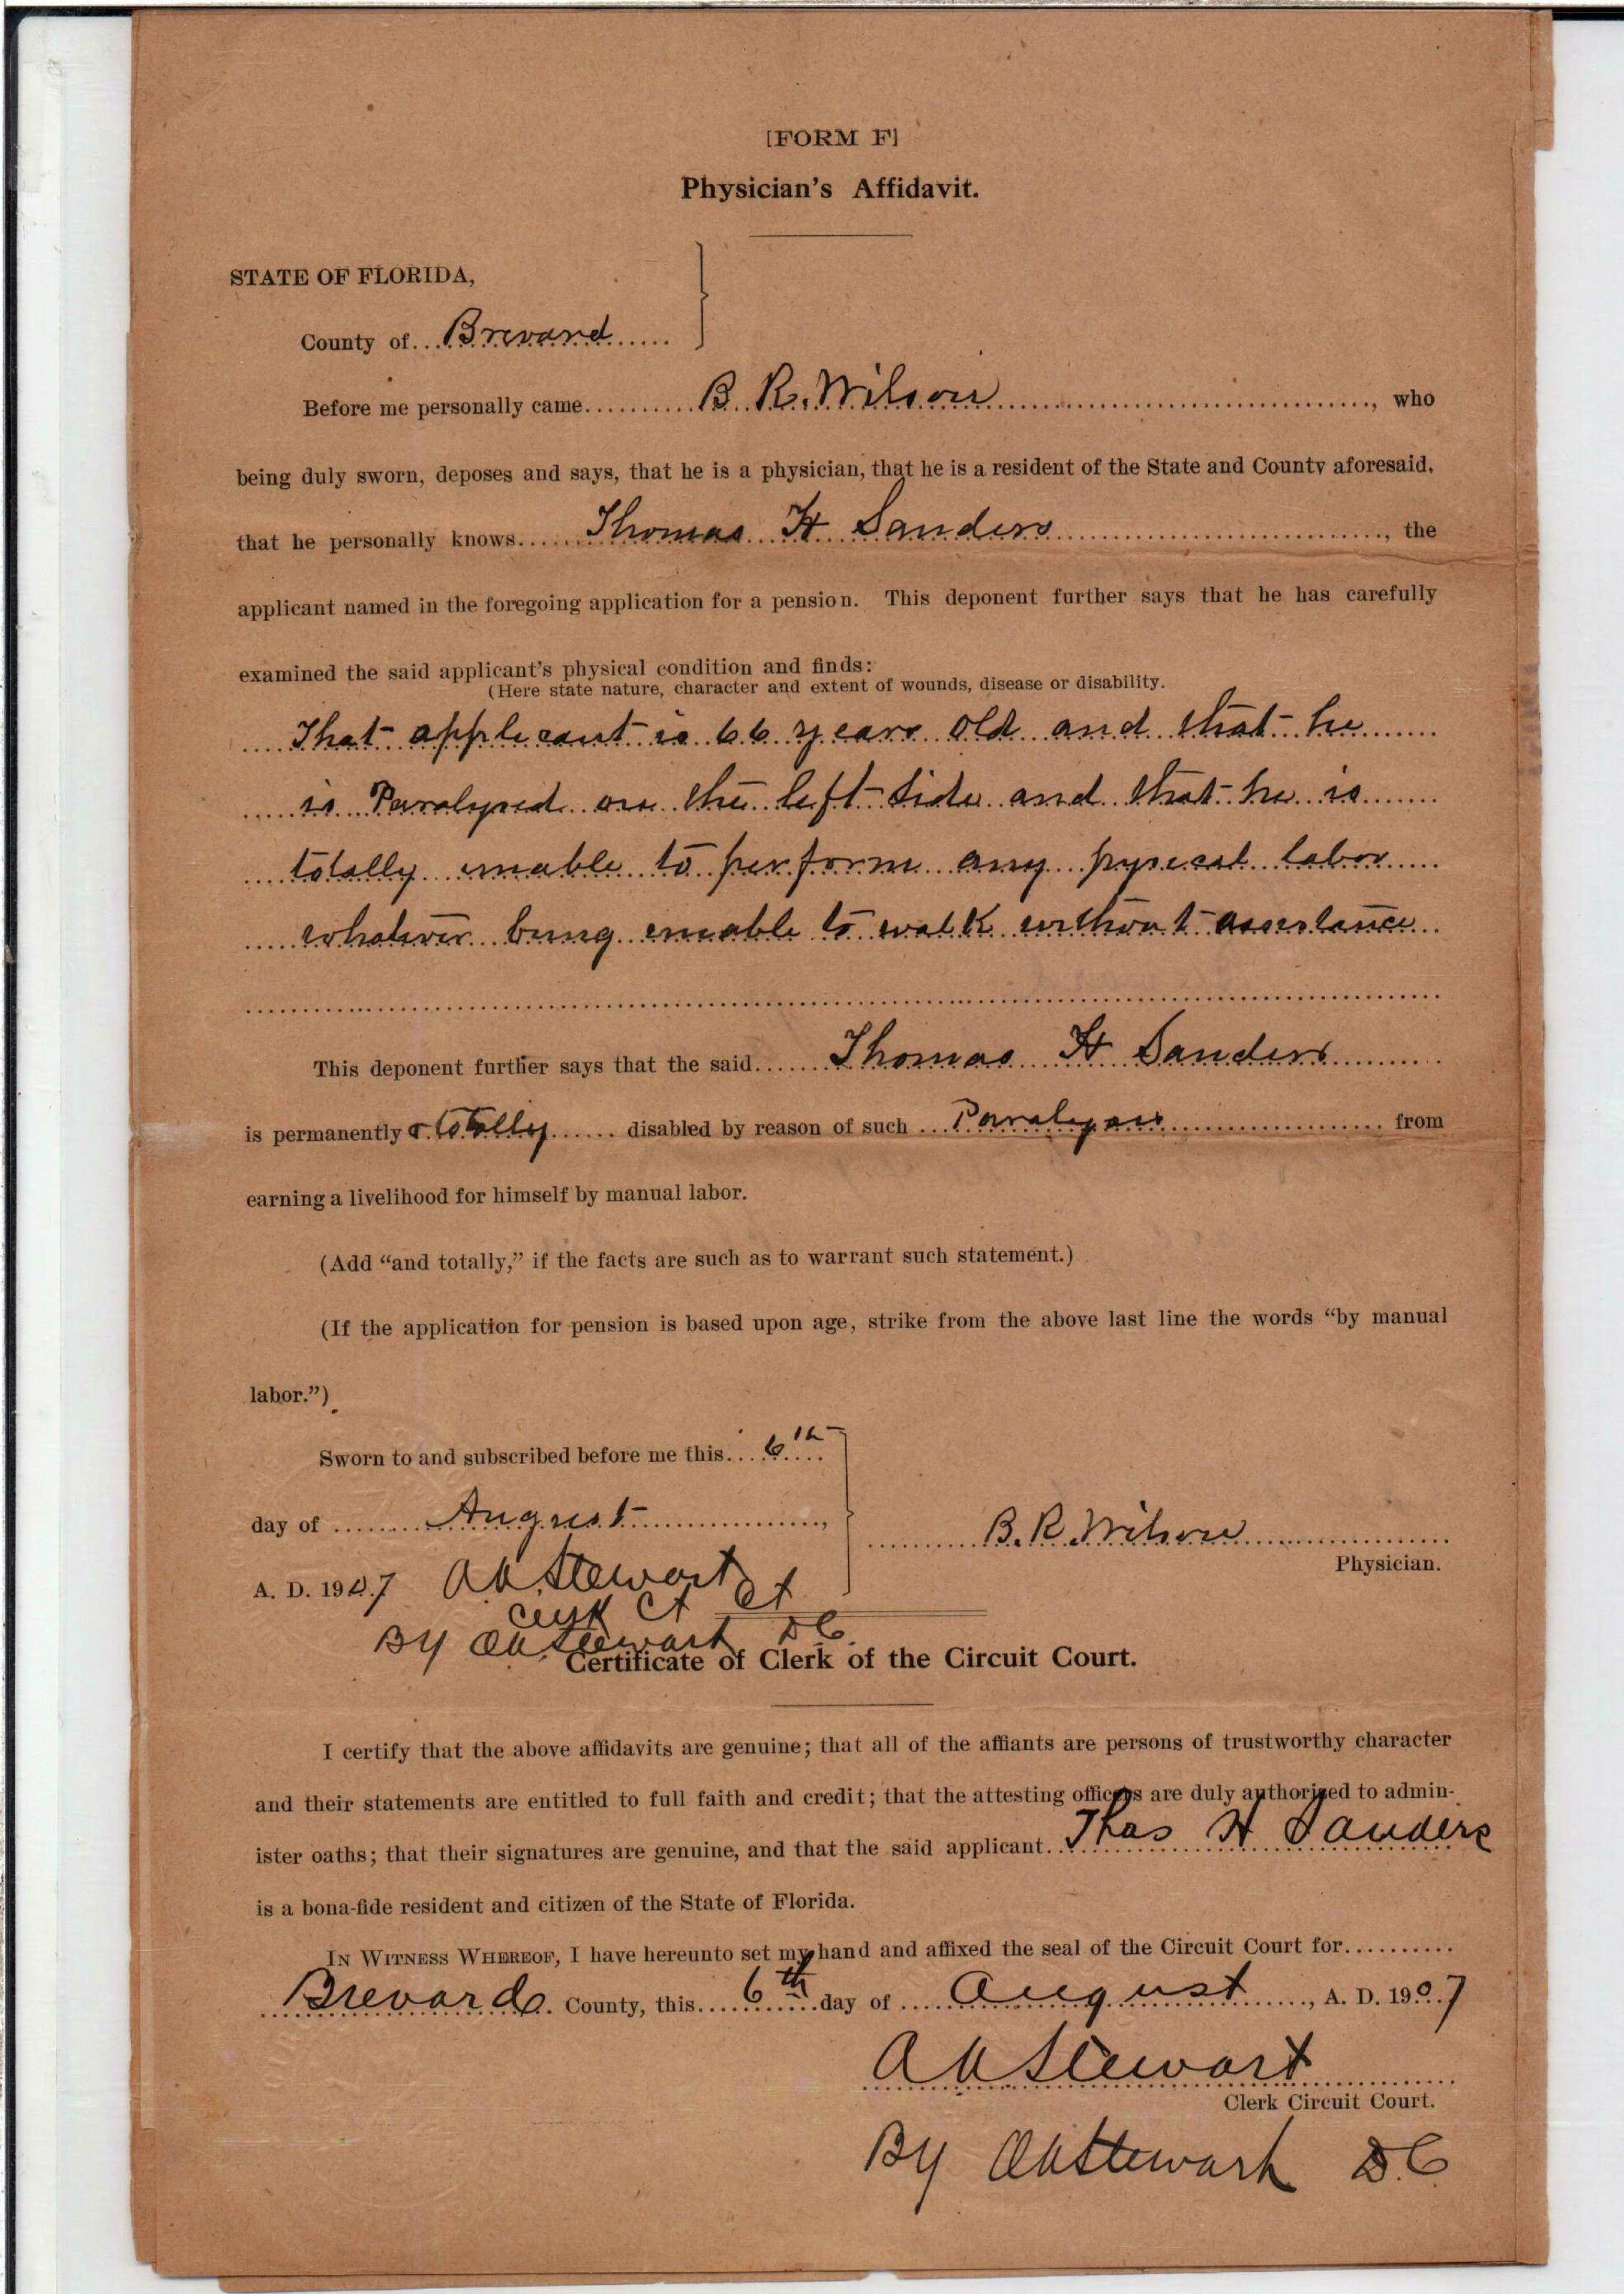 [FORM F]
Physician's Affidavit.
STATE OF FLORIDA,
County of Brevard
Before me personally came B. R. Wilson, who
being duly sworn, deposes and says, that he is a physician, that he is a resident of the State and County aforesaid,
that he personally knows Thomas H Sanders, the
applicant named in the foregoing application for a pension. This deponent further says that he has carefully
examined the said applicant's physical condition and finds:
(Here state nature, character and extent of wounds, disease or disability.
That applicant is 66 years old and that he
is Paralyzed on the left side and that he is
totally unable to perform any pysical labor
whatever being unable to walk without assistance
This deponent further says that the said Thomas H Sanders
is permanently & totally disabled by reason of such Paralysis from
earning a livelihood for himself by manual labor.
(Add "and totally," if the facts are such as to warrant such statement.)
(If the application for pension is based upon age, strike from the above last line the words "by manual
labor.")
Sworn to and subscribed before me this 6th
day of August,
B. R. Wilson
Physician.
A. D. 1907 Stewart
Clerk Ct Ct
By Stewart DC.
Certificate of Clerk of the Circuit Court.
I certify that the above affidavits are genuine; that all of the affiants are persons of trustworthy character
and their statements are entitled to full faith and credit; that the attesting officers are duly authorized to admin-
ister oaths; that their signatures are genuine, and that the said applicant Thos H Sanders
is a bona-fide resident and citizen of the State of Florida.
IN WITNESS WHEREOF, I have hereunto set my hand and affixed the seal of the Circuit Court for
Brevard County, this 6th day of August, A. D. 1907
Stewart
Clerk Circuit Court.
By Stewart D.C.